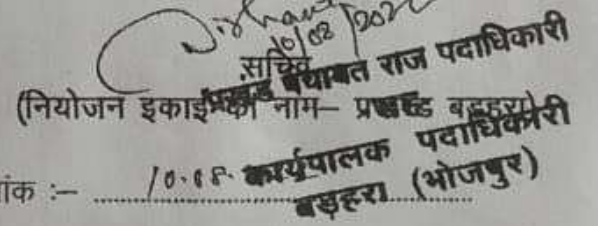 10/08/202
सचिव
प्रखंड पंचायत राज पदाधिकारी
(नियोजन इकाई का नाम– प्रखण्ड बड़हरा)
कार्यपालक पदाधिकारी
ांक :– 10.08.
बड़हरा (भोजपुर)